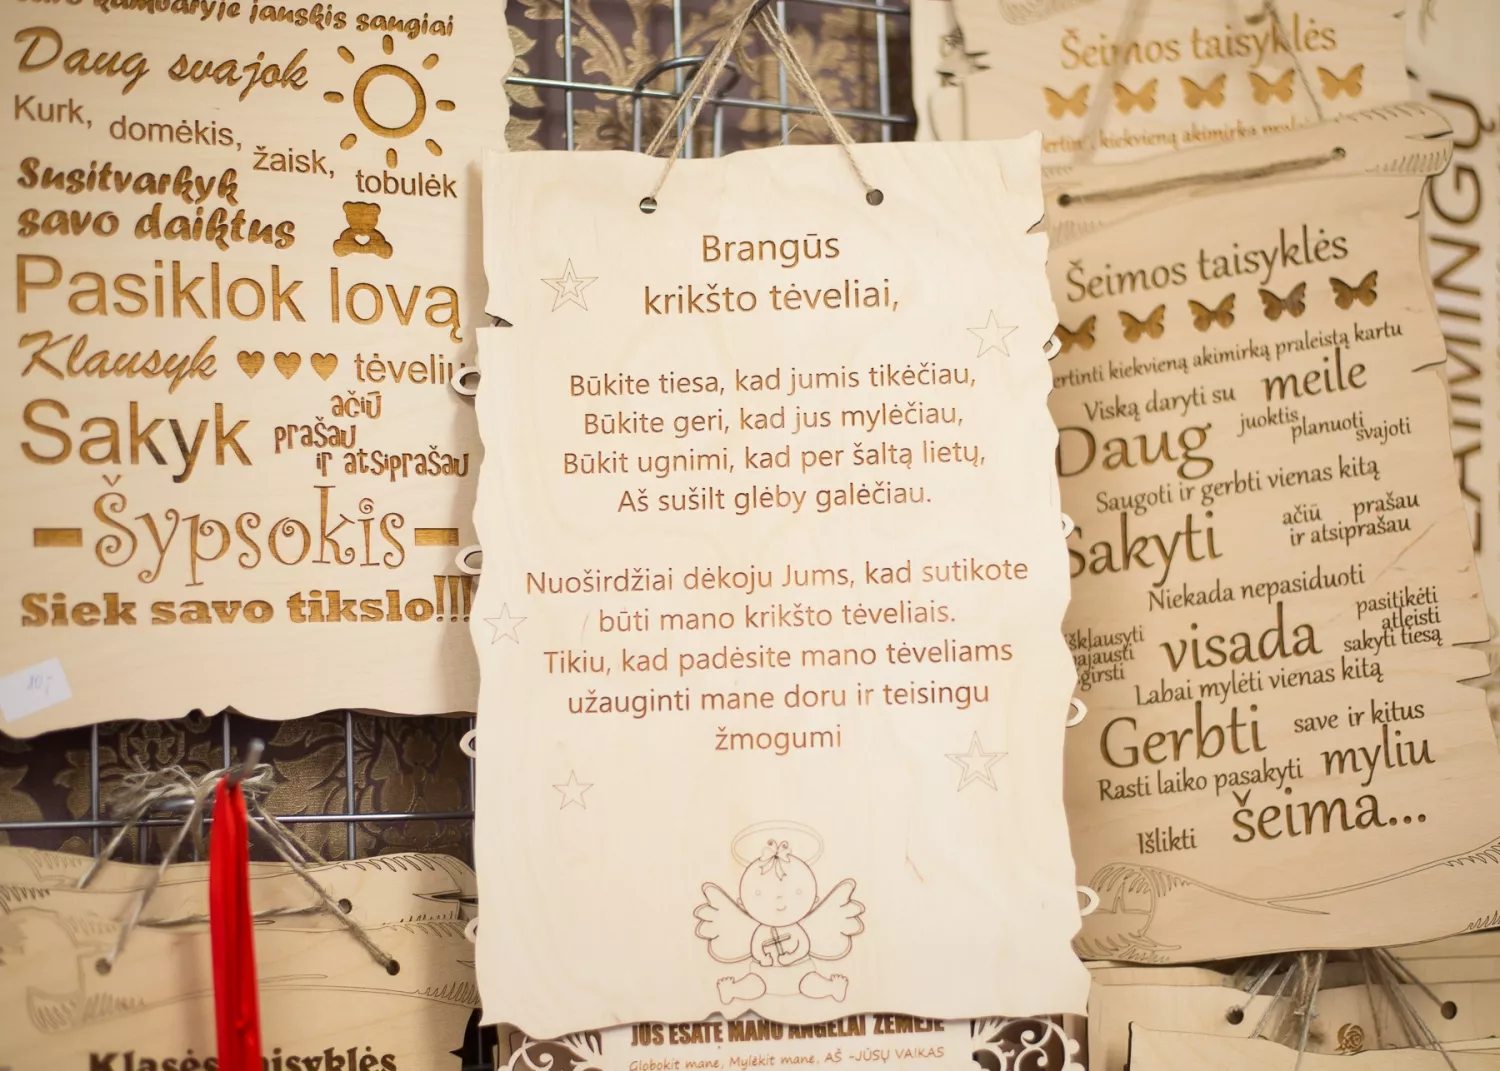 jauskis saugiai
Daug svajok
Kurk, domėkis, žaisk, tobulėk
Susitvarkyk
savo daiktus
Pasiklok lovą
Klausyk
Sakyk ačiū
prašau
ir atsiprašau
-Šypsokis-
Siek savo tikslo!!!!
10,-
Klasės
Brangūs
krikšto tėveliai,
Būkite tiesa, kad jumis tikėčiau,
Būkite geri, kad jus mylėčiau,
Būkit ugnimi, kad per šaltą lietų,
Aš sušilt glėby galėčiau.
Nuoširdžiai dėkoju Jums, kad sutikote
būti mano krikšto tėveliais.
Tikiu, kad padėsite mano tėveliams
užauginti mane doru ir teisingu
žmogumi
JŪS ESATE MANO ANGELAI ŽEMĖJE
Globokit mane, Mylėkit mane, AŠ -JŪSŲ VAIKAS
Šeimos taisyklės
kiekvieną akimirką
Šeimos taisyklės
kiekvieną akimirką praleistą kartu
Viską daryti su meile
Daug juoktis
planuoti
svajoti
Saugoti ir gerbti vienas kitą
Sakyti ačiū prašau
ir atsiprašau
Niekada nepasiduoti
visada pasitikėti
atleisti
sakyti tiesą
Labai mylėti vienas kitą
Gerbti save ir kitus
Rasti laiko pasakyti myliu
Išlikti šeima...
LAIMINGŲ